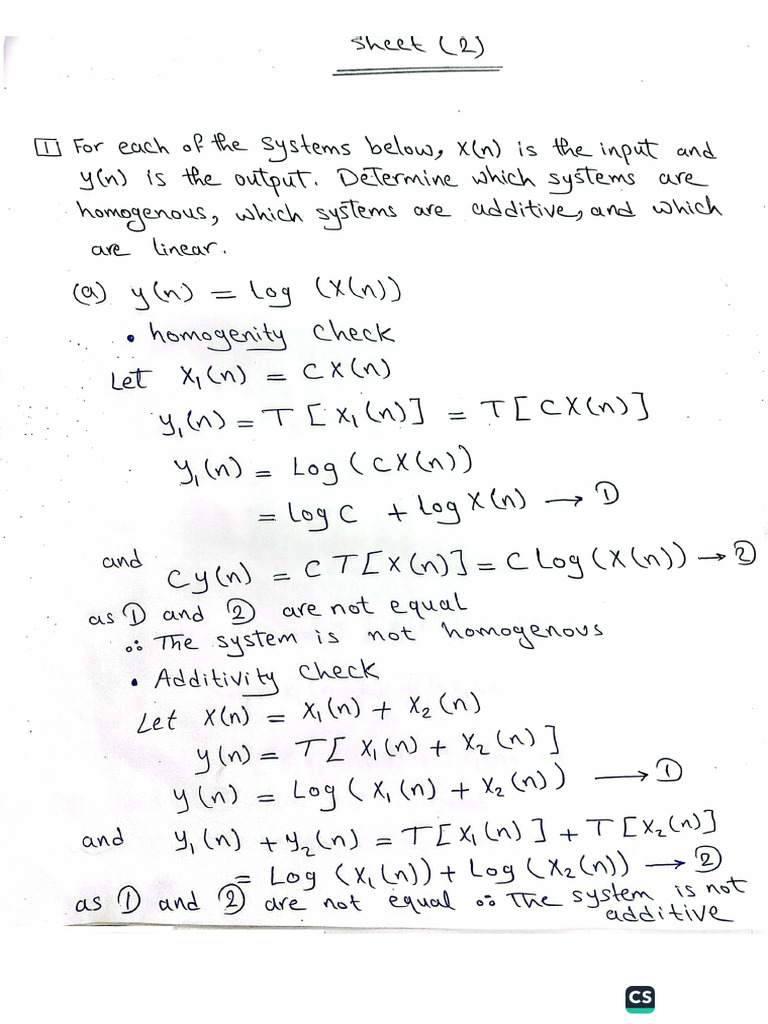 Sheet (2)
1 For each of the systems below, X(n) is the input and
y(n) is the output. Determine which systems are
homogenous, which systems are additive, and which
are linear.
(a) y(n) = Log (X(n))
• homogenity Check
Let X₁(n) = C X(n)
y₁(n) = T [ X₁(n)] = T [ C X(n)]
y₁(n) = Log ( C X(n))
= Log C + Log X(n) → ①
and C y(n) = C T [X(n)] = C Log (X(n)) → ②
as ① and ② are not equal
∴ The system is not homogenous
• Additivity Check
Let X(n) = X₁(n) + X₂(n)
y(n) = T [ X₁(n) + X₂(n) ]
y(n) = Log ( X₁(n) + X₂(n)) → ①
and y₁(n) + y₂(n) = T [X₁(n)] + T [X₂(n)]
= Log (X₁(n)) + Log (X₂(n)) → ②
as ① and ② are not equal ∴ The system is not
additive
CS